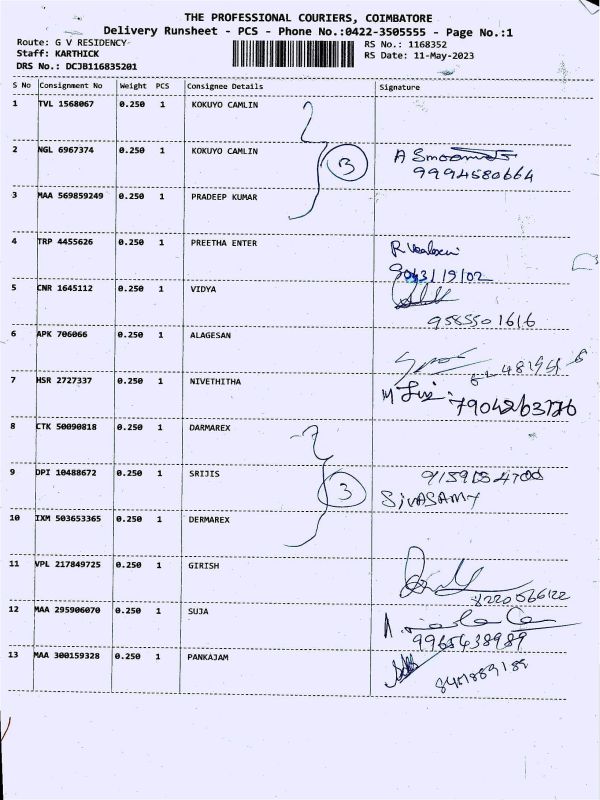 THE PROFESSIONAL COURIERS, COIMBATORE
Delivery Runsheet - PCS - Phone No.:0422-3505555 - Page No.:1
Route: G V RESIDENCY
Staff: KARTHICK
DRS No.: DCJB116835201
RS No.: 1168352
RS Date: 11-May-2023
S No Consignment No Weight PCS Consignee Details Signature
1 TVL 1568067 0.250 1 KOKUYO CAMLIN
2 NGL 6967374 0.250 1 KOKUYO CAMLIN
3
9994580664
3 MAA 569859249 0.250 1 PRADEEP KUMAR
4 TRP 4455626 0.250 1 PREETHA ENTER
5 CNR 1645112 0.250 1 VIDYA
9585501616
6 APK 706066 0.250 1 ALAGESAN
7 HSR 2727337 0.250 1 NIVETHITHA
8 CTK 50090818 0.250 1 DARMAREX
9 DPI 10488672 0.250 1 SRIJIS
3
SIVASAMY
10 IXM 503653365 0.250 1 DERMAREX
11 VPL 217849725 0.250 1 GIRISH
8220566122
12 MAA 295906070 0.250 1 SUJA
9965438989
13 MAA 300159328 0.250 1 PANKAJAM